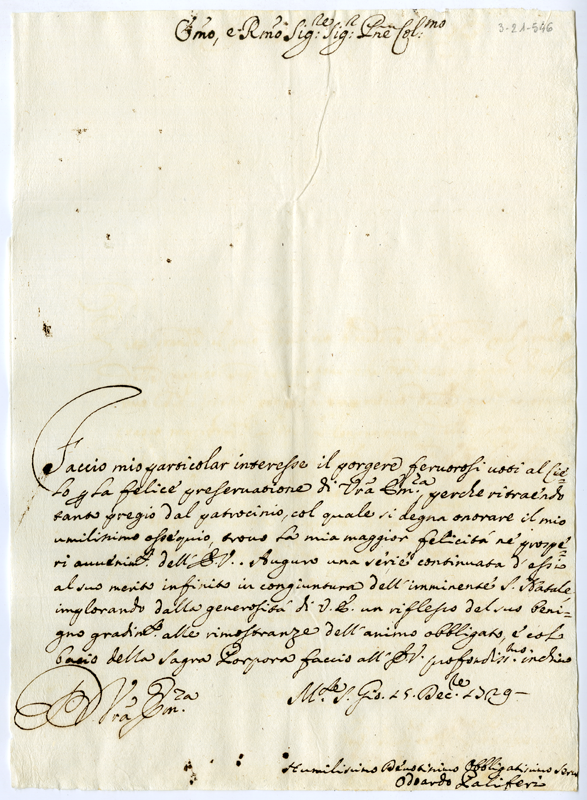 Em̃o, e Rm̃o Sig:re Sig:r Pñe Col:mo
3-21-546
Faccio mio particolar interesse il porgere feruorosi uoti al Cie=
lo p la felice preseruatione di Vrã Em.za, perche ritraendo
tanto pregio dal patrocinio, col quale si degna onorare il mio
umilissimo ossequio, trouo la mia maggior felicità ne prospe=
ri auuenim.ti dell'E.V.. Auguro una serie continuata d'essi
al suo merito infinito in congiuntura dell'imminente S. Natale,
implorando dalla generosità di V.E. un riflesso del suo beni=
gno gradim.to alle rimostranze dell'animo obbligato, e col
bacio della Sagra Porpora faccio all'E.V. profondiss.mo inchino
Di Vrã Em.za
S. Gio. 15. Dec.bre 1729
Humilissimo Deuotissimo Obbligatissimo Seru
Odoardo